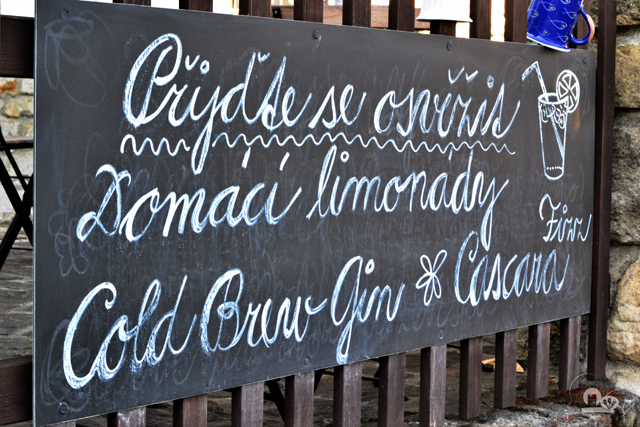 Přijďte se osvěžit
Domácí limonády
Cold Brew Gin Cascara
Fizz